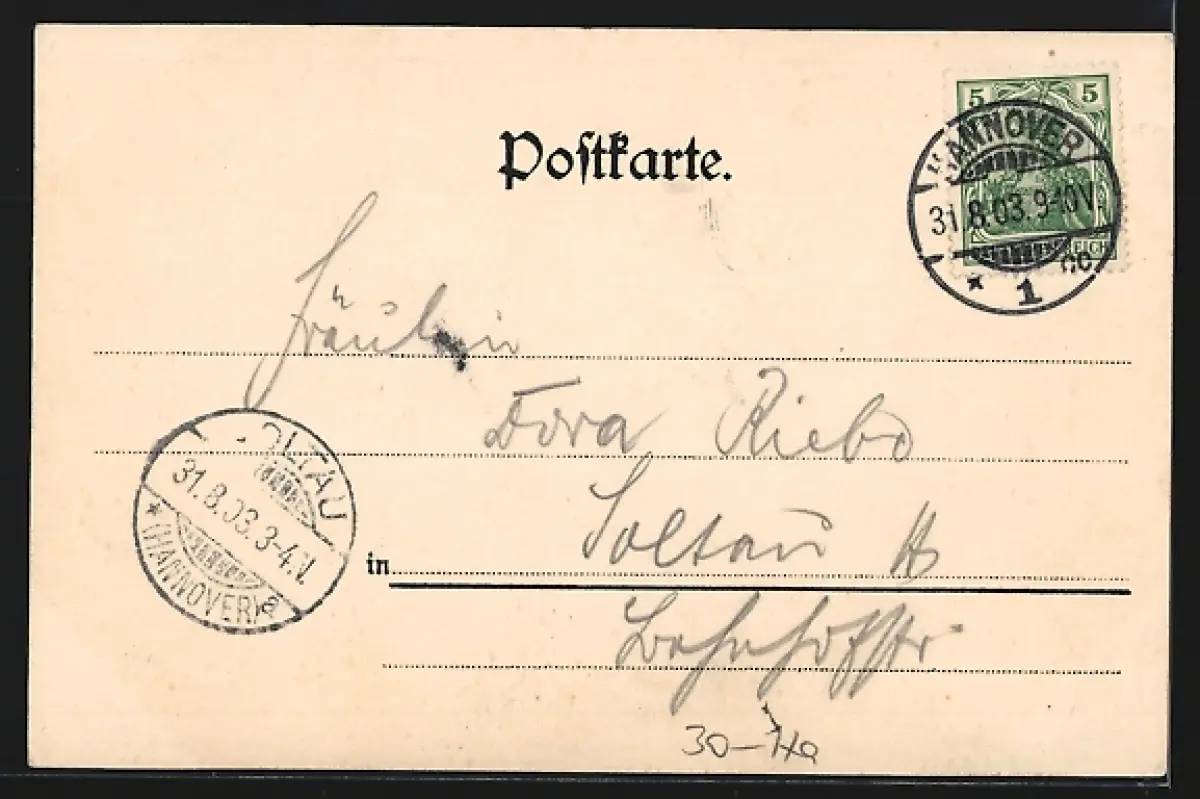 Postkarte.
5 5
HANNOVER
31.8.03. 9-10V.
* 1 cc.
REICH
Fräulein
Dora Riebo
SOLTAU
31.8.03. 3-4.V.
* (HANNOVER) a
in Soltau H
Bahnhofstr
30-Ha